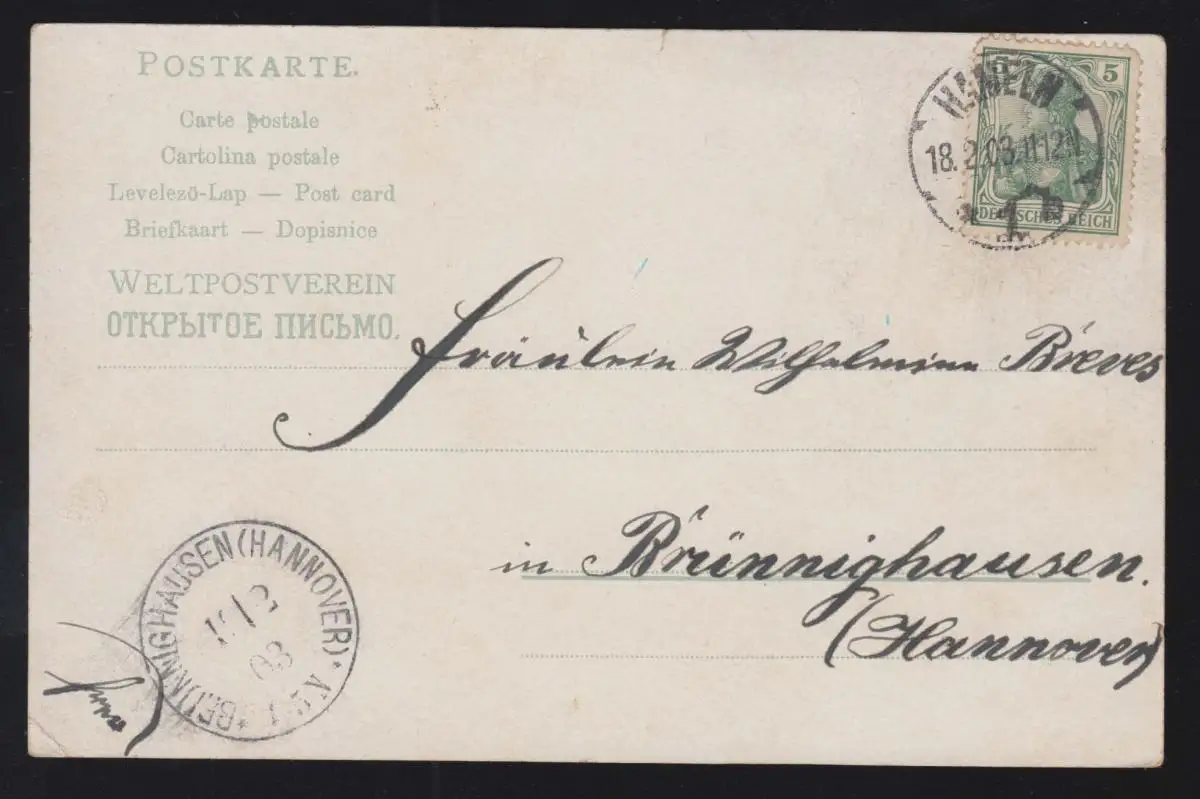 POSTKARTE.
Carte postale
Cartolina postale
Levelező-Lap — Post card
Briefkaart — Dopisnice
WELTPOSTVEREIN
ОТКРЫТОЕ ПИСЬМО.
HAMELN
18.2.03.11-12V.
* 1
5
DEUTSCHES REICH
Fräulein Wilhelmine Breves
in Brünnighausen.
(Hannover)
BRÜNNIGHAUSEN (HANNOVER)
19/2
03